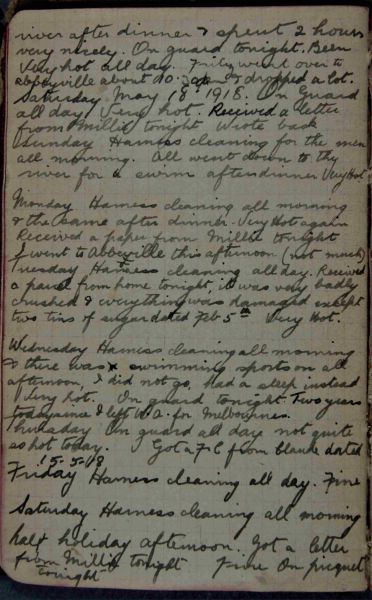 river after dinner & spent 2 hours
very nicely. On guard tonight. Been
very hot all day. Fritz went over to
Abbeyville about 10. & dropped a lot.
Saturday May 18th 1918. On Guard
all day Very hot. Received a letter
from Millie tonight Wrote back
Sunday Harness cleaning for the men
all morning. All went down to the
river for a swim after dinner Very Hot
Monday Harness cleaning all morning
& the same after dinner Very Hot again
Received a paper from Millie tonight
I went to Abbeyville this afternoon (not much)
Tuesday Harness cleaning all day. Received
a parcel from home tonight, it was very badly
crushed & everything was damaged except
two tins of sugar dated Feb 5th Very Hot.
Wednesday Harness cleaning all morning
& there was swimming sports on all
afternoon, I did not go, had a sleep instead
Very hot. On guard tonight Two years
today since I left W.A. for Melbourne.
Thursday On guard all day not quite
so hot today. I Got a P.C from Claude dated
15-5-18
Friday Harness cleaning all day. Fine
Saturday Harness cleaning all morning
half holiday afternoon. Got a letter
from Millie tonight Fine On picquet
tonight